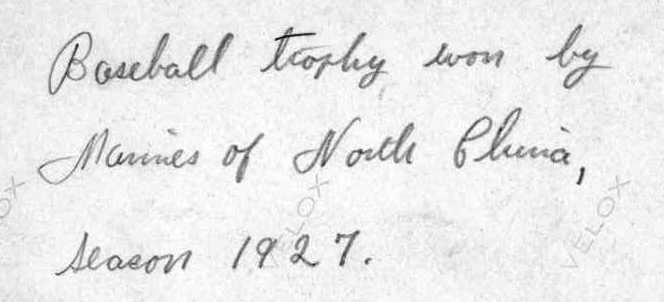 Baseball trophy won by
Marines of North China,
season 1927.
VELOX
VELOX